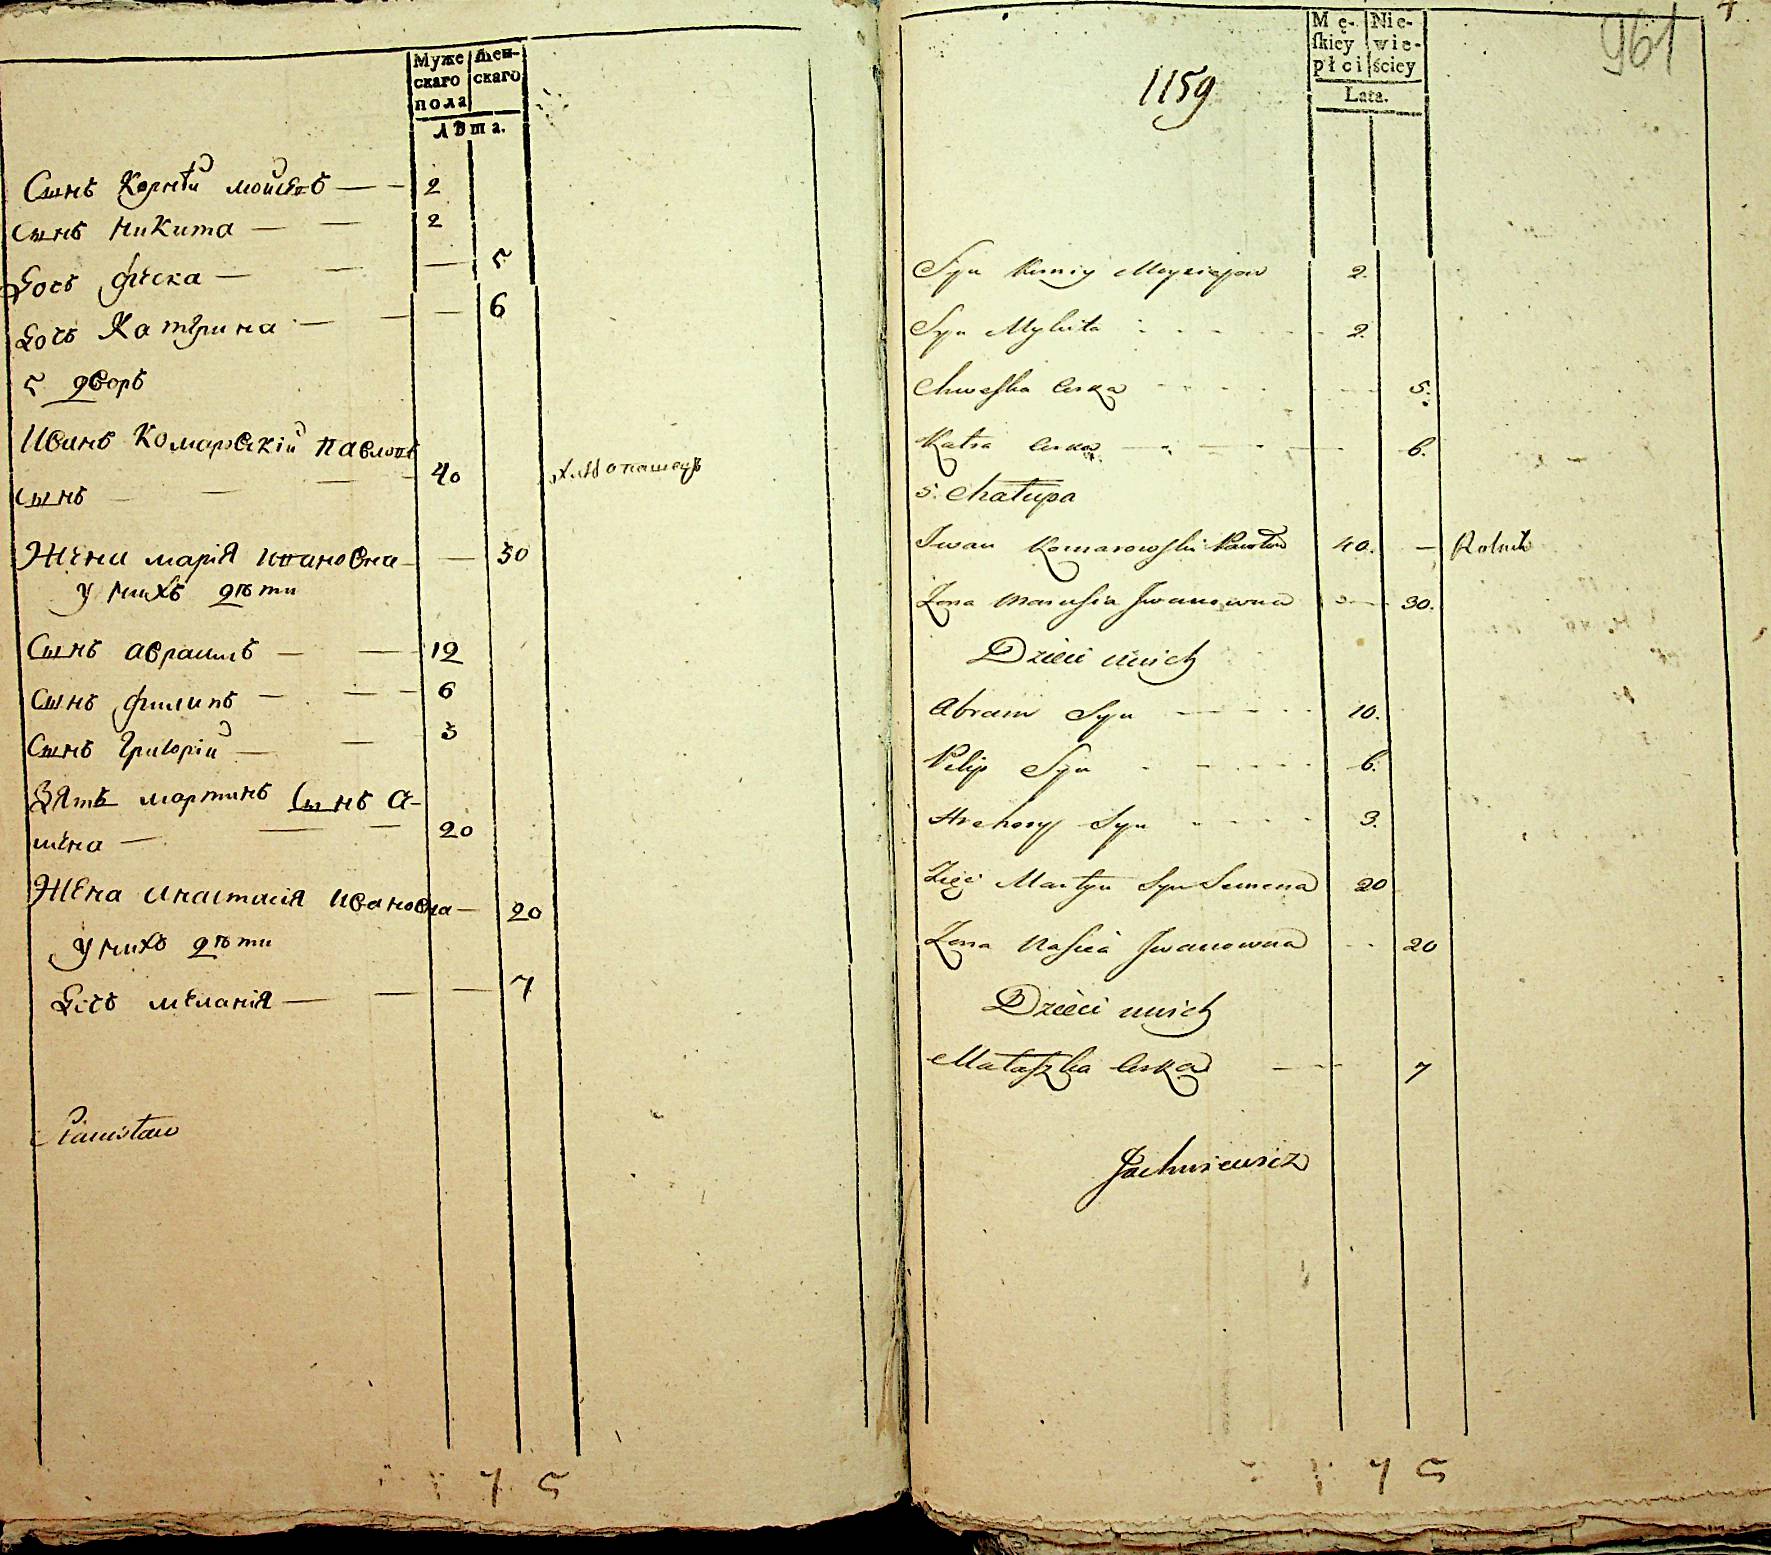 Муже
скаго
пола
Жен-
скаго
Лѣта.
Сынъ Корнѣй мойсѣовъ — — 2
Сынъ Никита — — 2
Дочь фѣска — — — 5
Дочь Катерина — — — 6
5 дворъ
Иванъ Комаровскій Павловъ
Сынъ — — — 40 хлѣбопашецъ
Жена марія Ивановна — — 30
у нихъ дѣти
Сынъ авраамъ — — 12
Сынъ филипъ — — — 6
Сынъ Григорій — — 3
Зять мартинъ Сынъ Се-
мена — — — 20
Жена Анастасія Ивановна — 20
у нихъ дѣти
Дочь меланія — — — 7
Stanisław
7 5
961
1159
Mę-
skiey
płci
Nie-
wie-
ściey
Lata.
Syn Korniy Moyziejow 2.
Syn Mykita 2.
Chweska Curka 5.
Katra Curka 6.
5. Chałupa
Iwan Komarowski Pawłow 40. — Rolnik
Zona Marusia Iwanowna 30.
Dzieci u nich
Abram Syn 10.
Pilip Syn 6.
Hrehory Syn 3.
Zięć Martyn Syn Semena 20
Zona Nascia Iwanowna 20
Dzieci u nich
Małaszka Curka 7
Jachniewicz
7 5